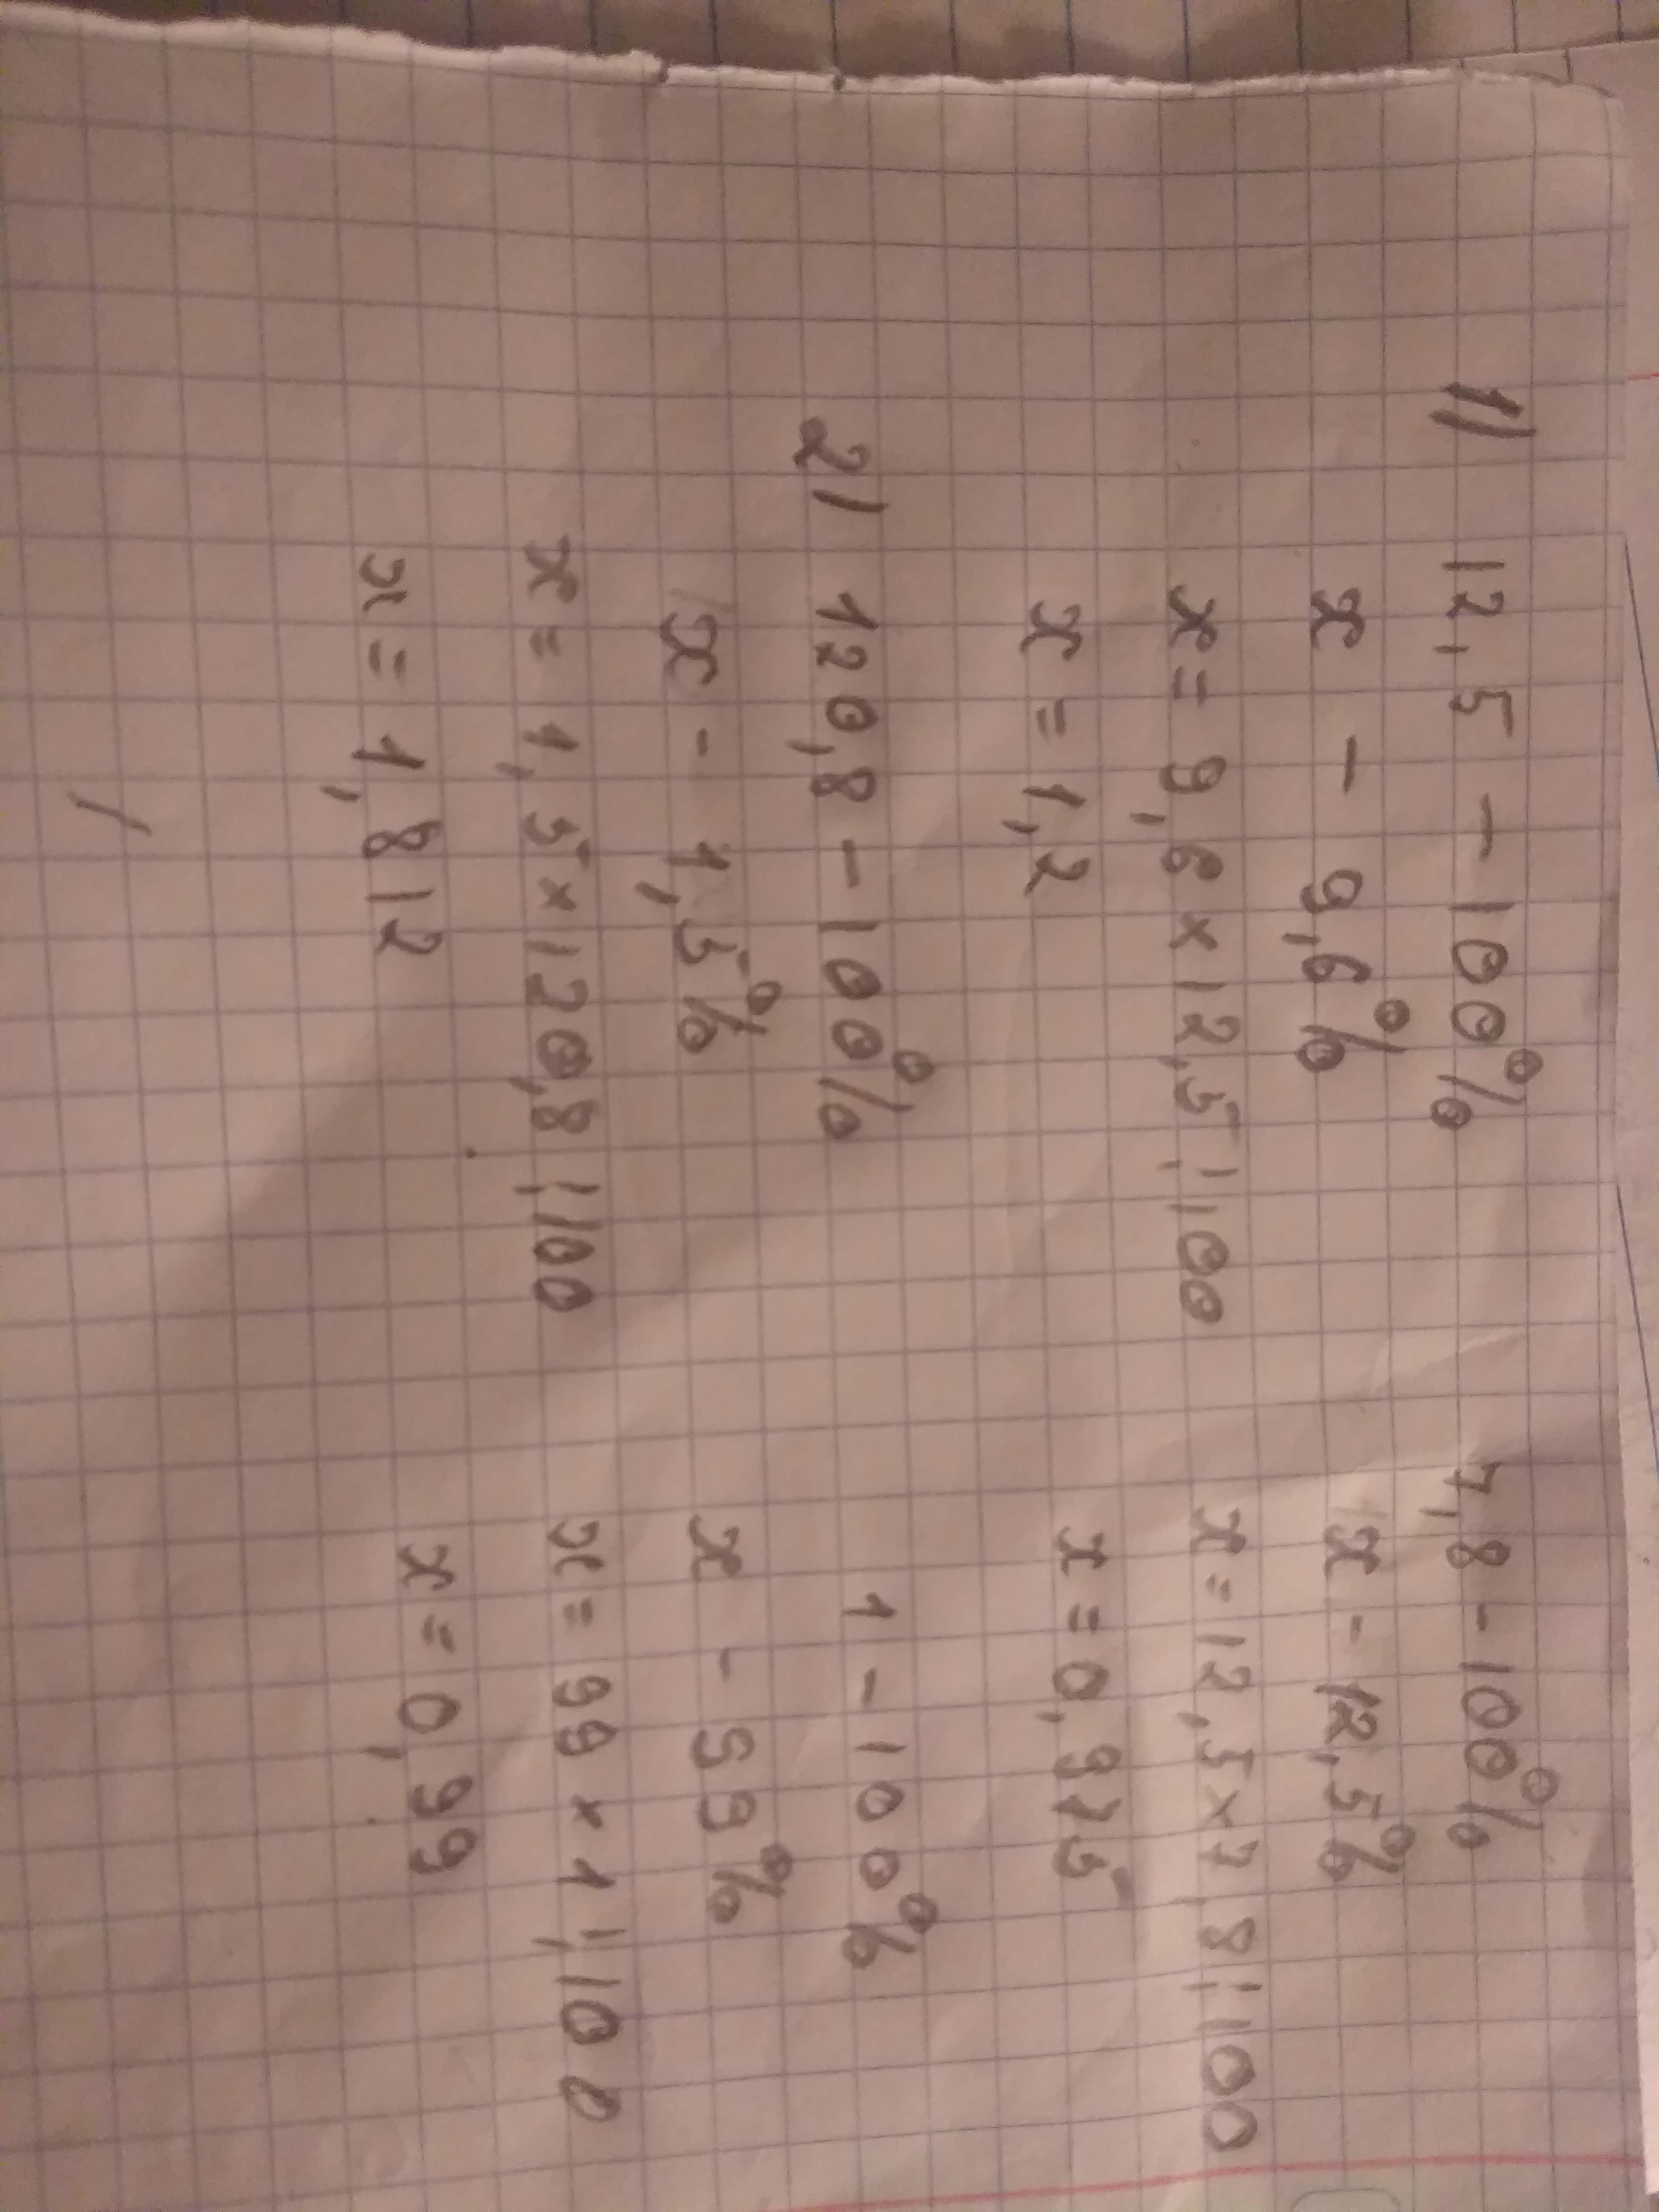 1) 12,5 – 100%
x – 9,6%
x = 9,6 × 12,5 : 100
x = 1,2
7,8 – 100%
x – 12,5%
x = 12,5 × 7,8 : 100
x = 0,975
2) 120,8 – 100%
x – 1,5%
x = 1,5 × 120,8 : 100
x = 1,812
1 – 100%
x – 99%
x = 99 × 1 : 100
x = 0,99